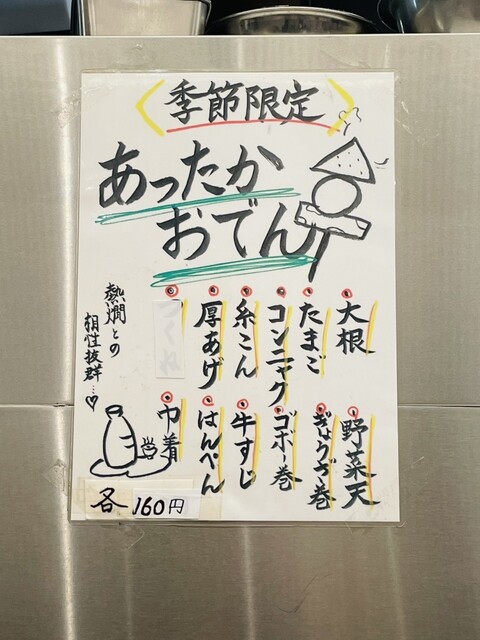 季節限定
あったか
おでん
大根
たまご
コンニャク
糸こん
厚あげ
つくね
野菜天
ぎょうざ巻
ゴボー巻
牛すじ
はんぺん
巾着
熱燗との
相性抜群…♡
各160円